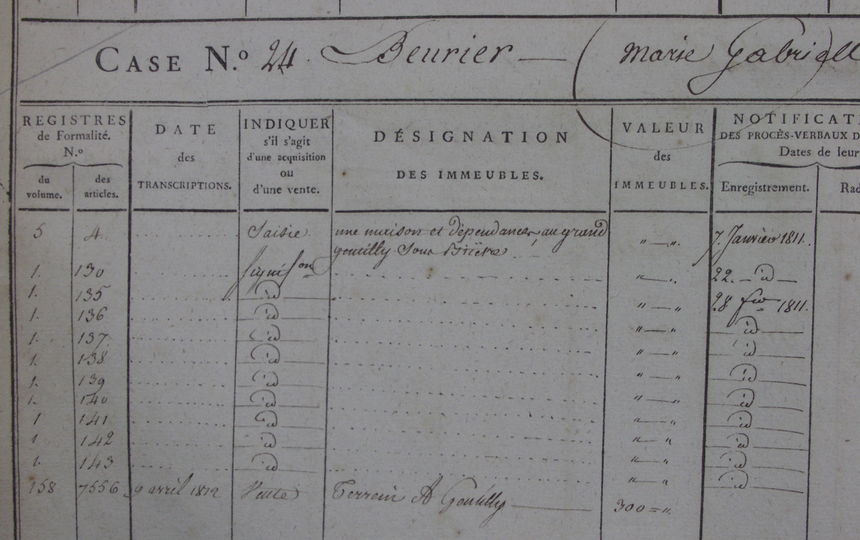 CASE N.º 24. Beurier — ( Marie Gabriell
REGISTRES de Formalité. N.º
du volume.
des articles.
DATE des TRANSCRIPTIONS.
INDIQUER s'il s'agit d'une acquisition ou d'une vente.
DÉSIGNATION DES IMMEUBLES.
VALEUR des IMMEUBLES.
NOTIFICAT
DES PROCÈS-VERBAUX D
Dates de leur
Enregistrement.
Rad
5 4. Saisie une maison et dépendances, au grand " — ". 7. Janvier 1811.
gentilly Sous Bicêtre
1. 130 signifon " — ". 22. — id —
1. 135 id " — " 28 fer 1811.
1. 136 id " — " id
1. 137 id " — " id
1. 138 id " — " id
1. 139 id " — " id
1. 140 id " — " id
1 141 id " — " id
1 142 id " — " id
1. 143 id " — " id
158 7556 9 avril 1812 Vente Terrein A Gentilly 300 = "